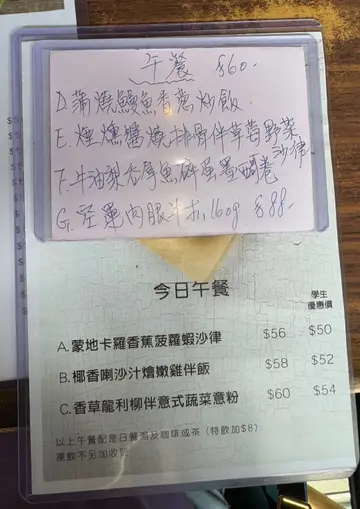 午餐 $60.
D. 蒲燒鰻魚香蔥炒飯.
E. 煙燻醬燒排骨伴草莓野菜
沙律.
F. 牛油梨吞拿魚碎蛋墨西哥卷
G. 肉眼牛扒 160g $88.
今日午餐
學生
優惠價
A.蒙地卡羅香蕉菠蘿蝦沙律 $56 $50
B.椰香喇沙汁燴嫩雞伴飯 $58 $52
C.香草龍利柳伴意式蔬菜意粉 $60 $54
以上午餐配是日餐湯及咖啡或茶（特飲加$8）
凍飲不另加收費